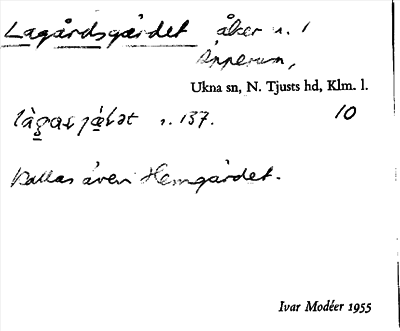 Lagårdsgärdet åker n. 1
Änperum,
Ukna sn, N. Tjusts hd, Klm. l.
s. 137. 10
Kallas även Hemgärdet.
Ivar Modéer 1955